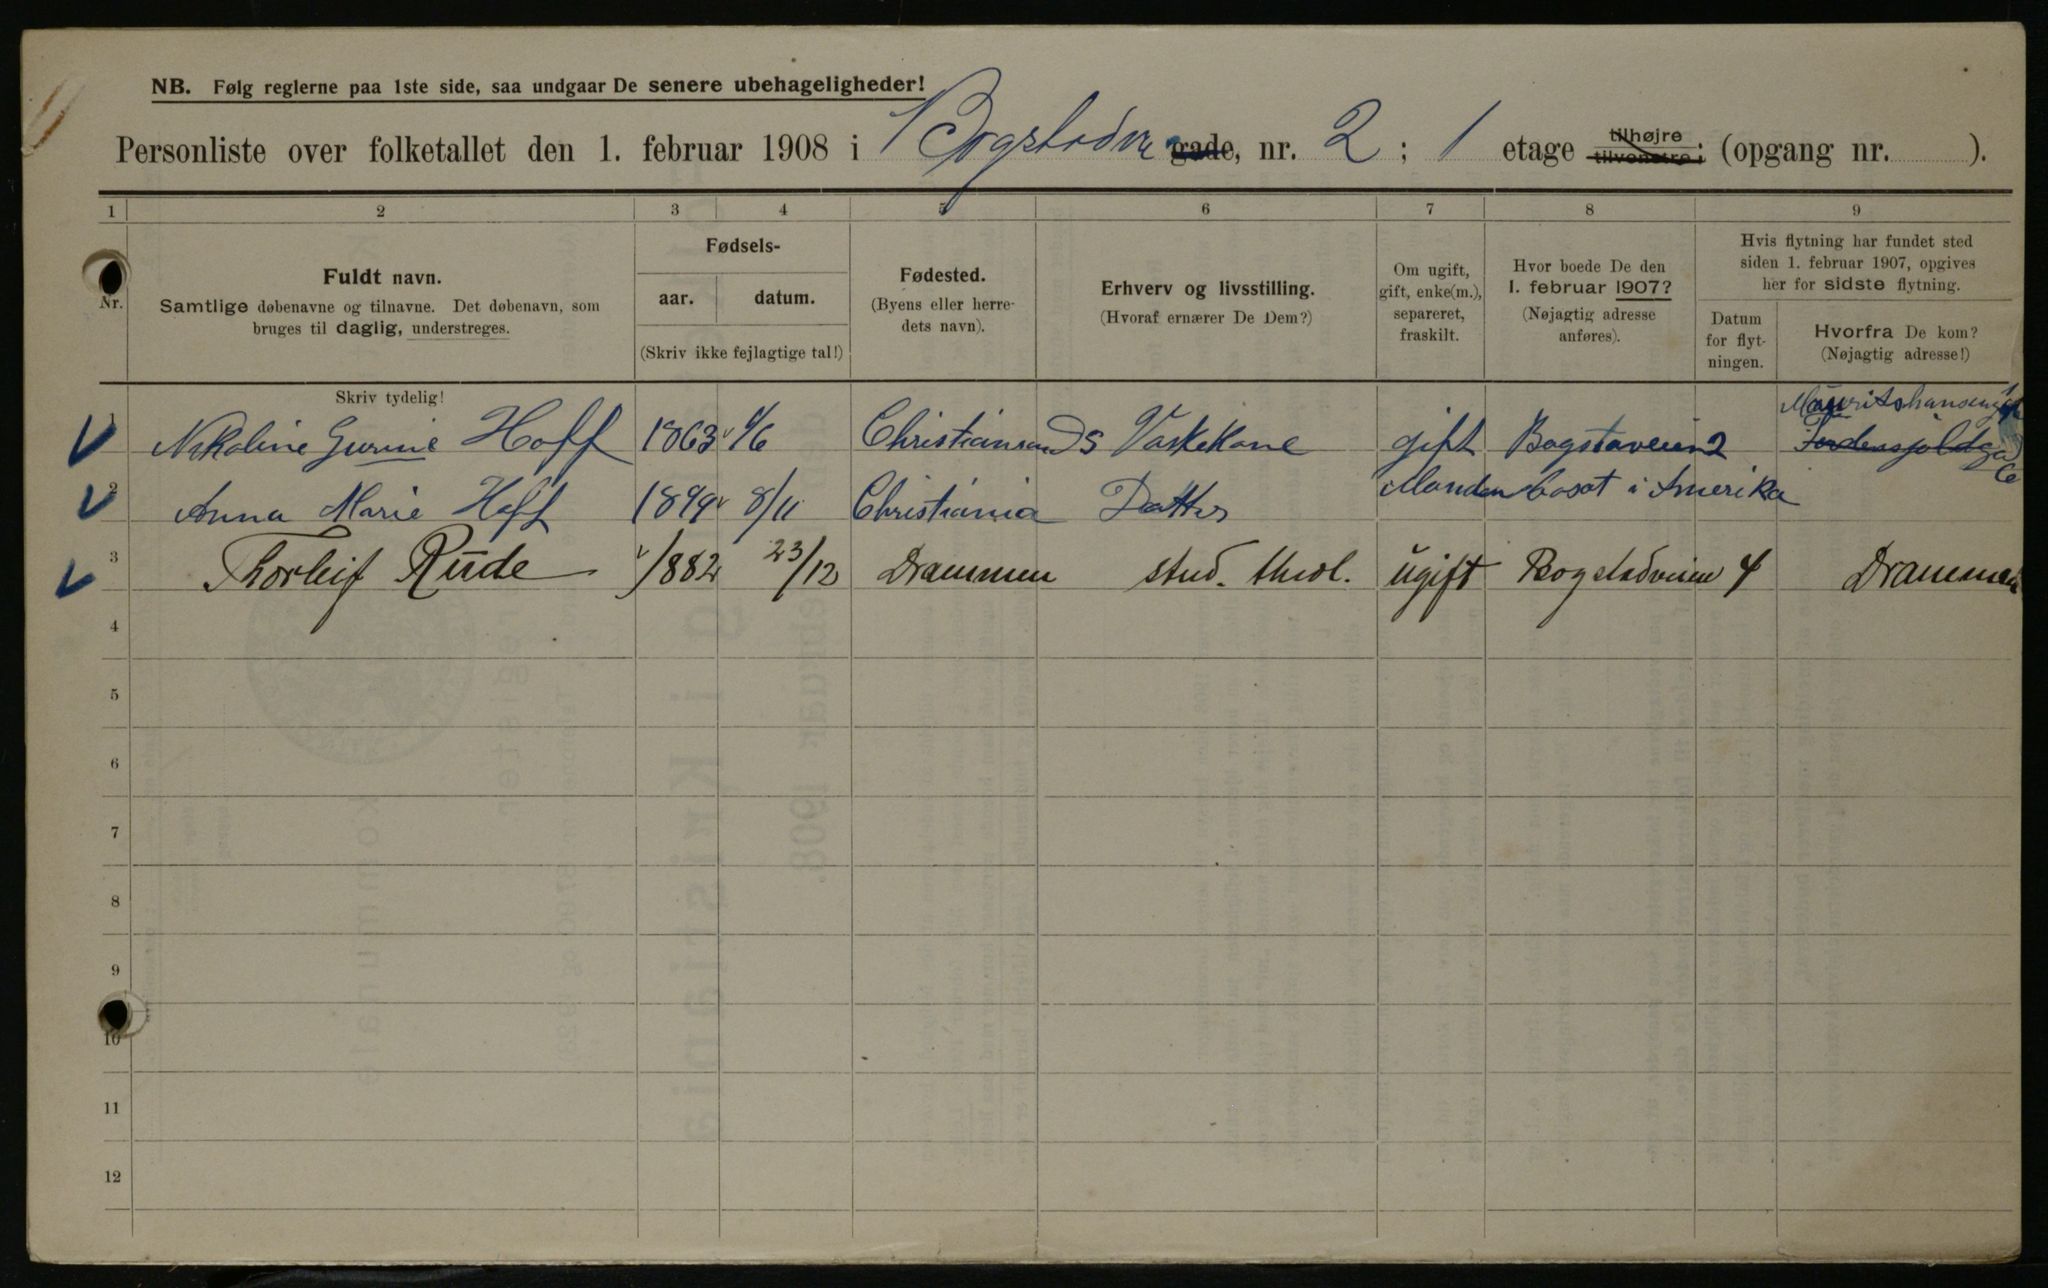 NB. Følg reglerne paa 1ste side, saa undgaar De senere ubehageligheder!
Personliste over folketallet den 1. februar 1908 i Bogstadve gade, nr. 2 ; 1 etage tilhøjre tilvenstre ; (opgang nr. ).
1 2 3 4 5 6 7 8 9
Nr.
Fuldt navn.
Samtlige døbenavne og tilnavne. Det døbenavn, som
bruges til daglig, understreges.
Fødsels-
aar. datum.
(Skriv ikke fejlagtige tal!)
Fødested.
(Byens eller herre-
dets navn).
Erhverv og livsstilling.
(Hvoraf ernærer De Dem?)
Om ugift,
gift, enke(m.),
separeret,
fraskilt.
Hvor boede De den
1. februar 1907?
(Nøjagtig adresse
anføres).
Hvis flytning har fundet sted
siden 1. februar 1907, opgives
her for sidste flytning.
Datum
for flyt-
ningen.
Hvorfra De kom?
(Nøjagtig adresse!)
Skriv tydelig!
1 Nikoline Gurine Hoff 1863 6/6 Christiansands Vaskekone gift Bogstaveien 2
2 Anna Marie Hoff 1899 8/11 Christiania Datter Manden bosat i Amerika
3 Thorleif Rude 1882 23/12 Drammen stud. theol. ugift Bogstadveien 4 Drammen
4
5
6
7
8
9
10
11
12